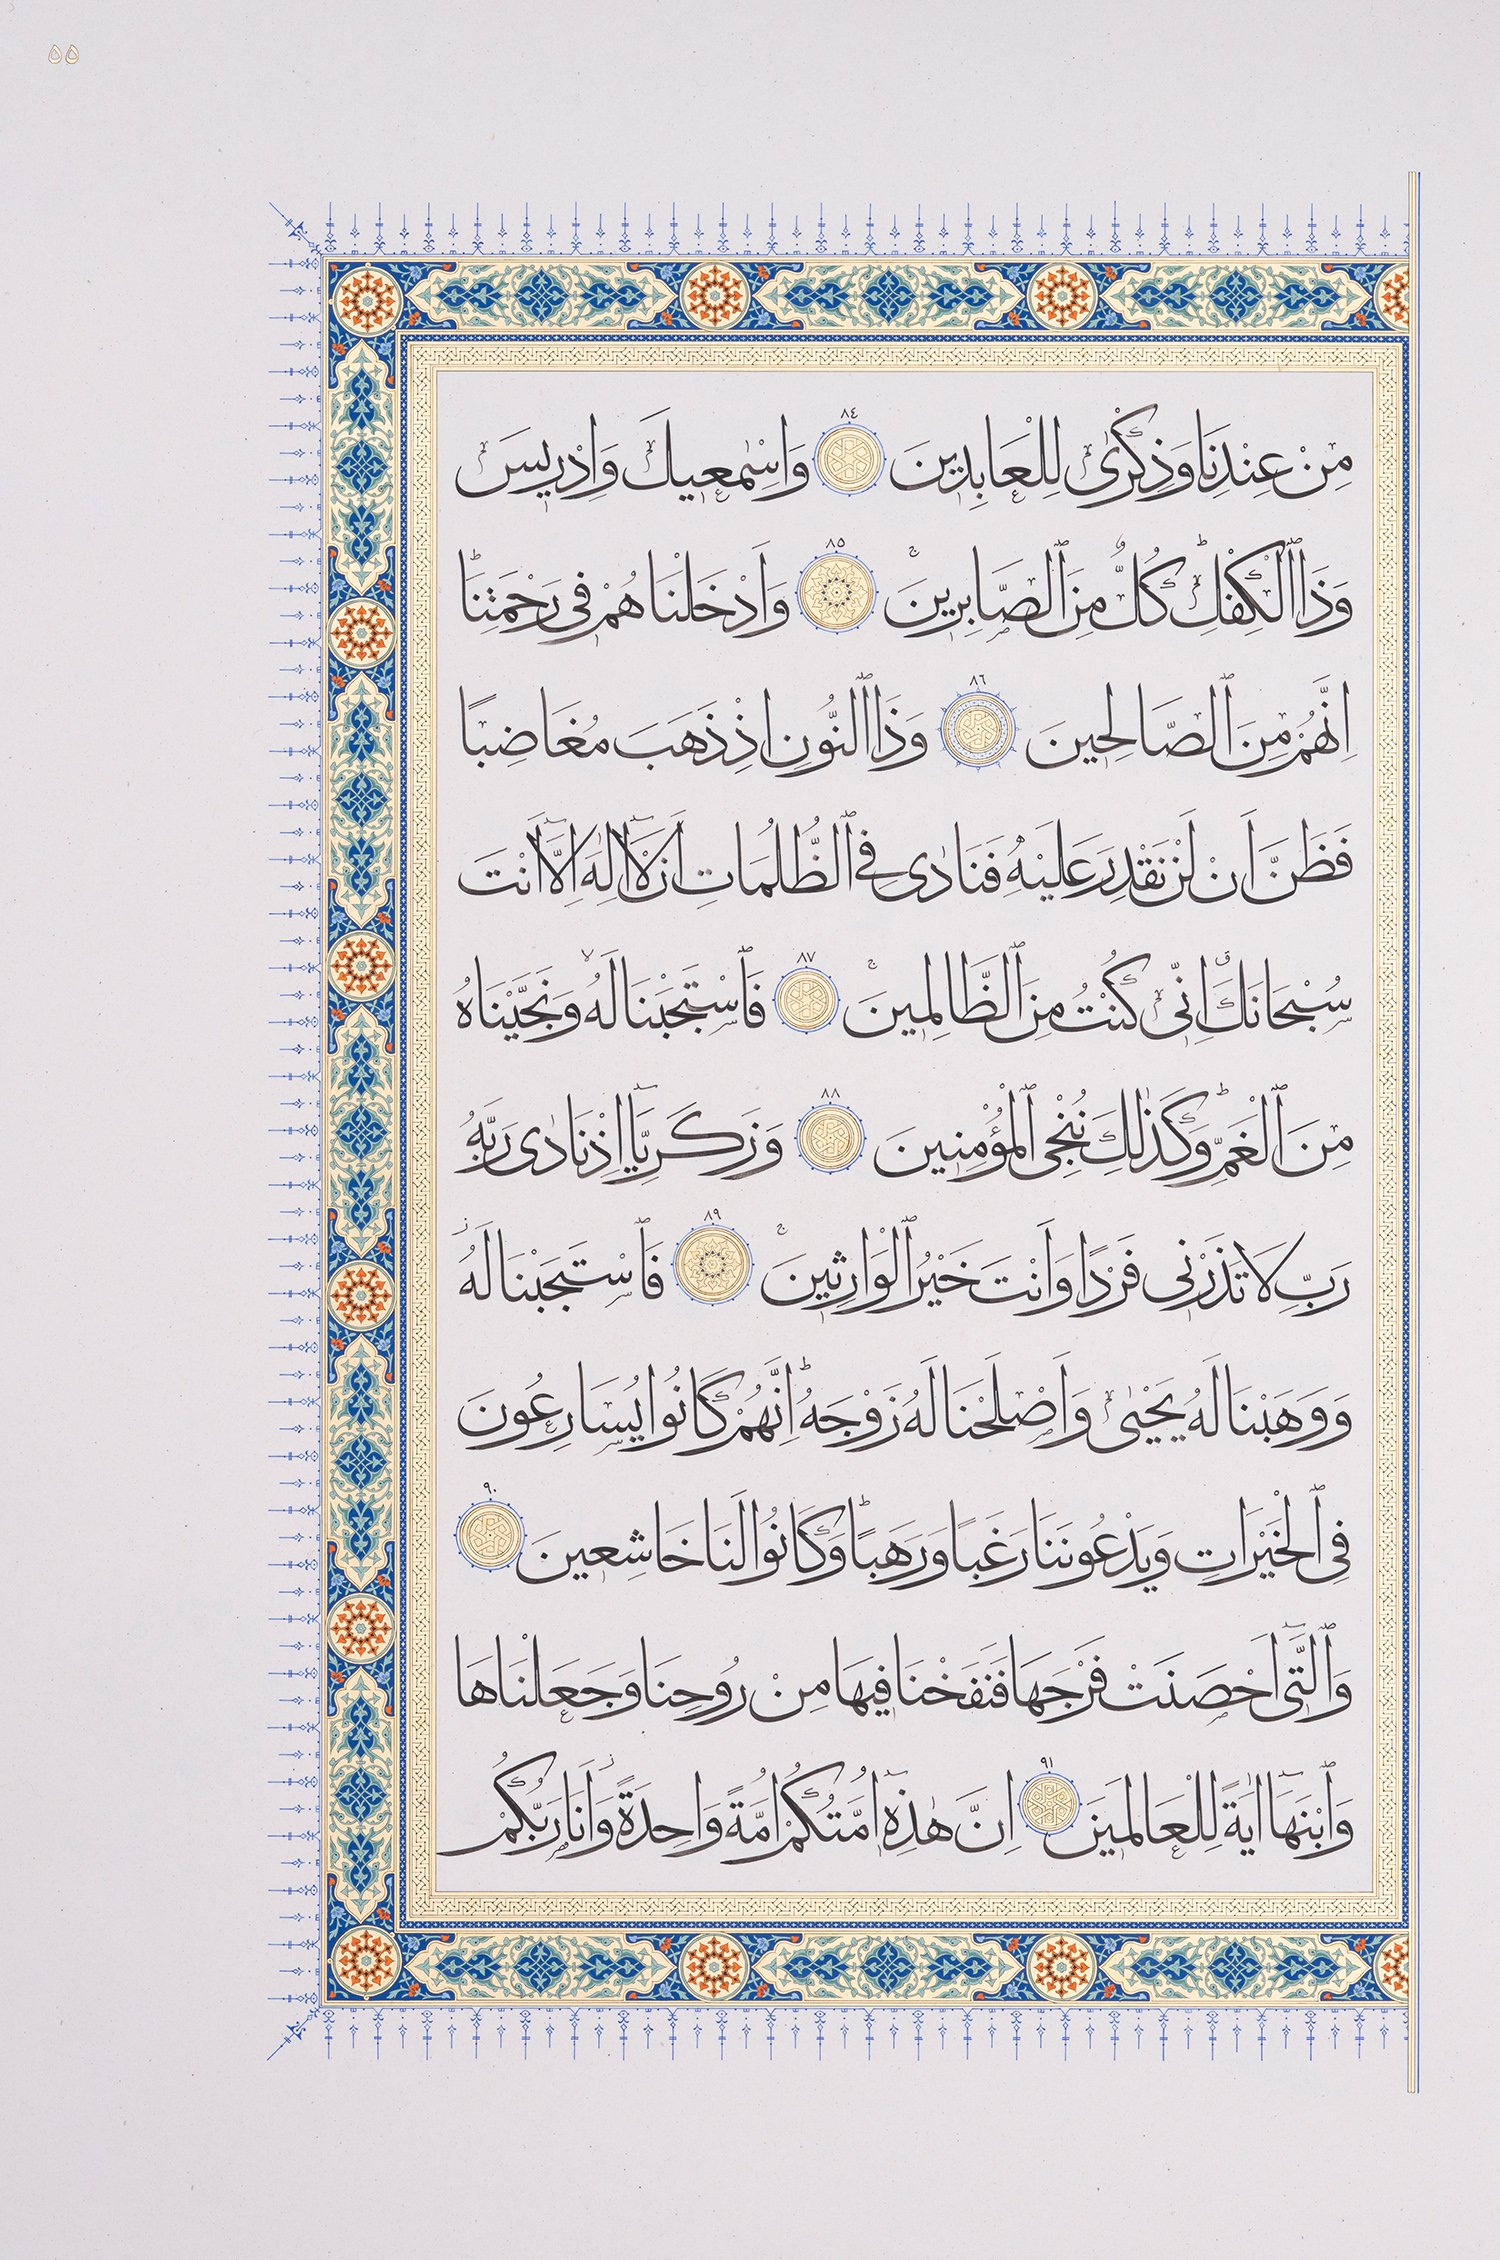 ۵۵
مِنْ عِنْدِنَا وَذِكْرٰى لِلْعَابِدٖينَ ٨٤ وَاِسْمٰعٖيلَ وَاِدْرٖيسَ
وَذَا ٱلْكِفْلِؕ كُلٌّ مِنَ ٱلصَّابِرٖينَۚ ٨٥ وَاَدْخَلْنَاهُمْ فٖى رَحْمَتِنَاؕ
اِنَّهُمْ مِنَ ٱلصَّالِحٖينَ ٨٦ وَذَا ٱلنُّونِ اِذْ ذَهَبَ مُغَاضِبًا
فَظَنَّ اَنْ لَنْ نَقْدِرَ عَلَيْهِ فَنَادٰى فِى ٱلظُّلُمَاتِ اَنْ لَٓا اِلٰهَ اِلَّٓا اَنْتَ
سُبْحَانَكَۗ اِنّٖى كُنْتُ مِنَ ٱلظَّالِمٖينَۚ ٨٧ فَٱسْتَجَبْنَا لَهُۙ وَنَجَّيْنَاهُ
مِنَ ٱلْغَمِّؕ وَكَذٰلِكَ نُنْجِى ٱلْمُؤْمِنٖينَ ٨٨ وَزَكَرِيَّٓا اِذْ نَادٰى رَبَّهُ
رَبِّ لَا تَذَرْنٖى فَرْدًا وَاَنْتَ خَيْرُ ٱلْوَارِثٖينَۚ ٨٩ فَٱسْتَجَبْنَا لَهُؗ
وَوَهَبْنَا لَهُ يَحْيٰى وَاَصْلَحْنَا لَهُ زَوْجَهُؕ اِنَّهُمْ كَانُوا يُسَارِعُونَ
فِى ٱلْخَيْرَاتِ وَيَدْعُونَنَا رَغَبًا وَرَهَبًاؕ وَكَانُوا لَنَا خَاشِعٖينَ ٩٠
وَٱلَّتٖٓى اَحْصَنَتْ فَرْجَهَا فَنَفَخْنَا فٖيهَا مِنْ رُوحِنَا وَجَعَلْنَاهَا
وَٱبْنَهَٓا اٰيَةً لِلْعَالَمٖينَ ٩١ اِنَّ هٰذِهٖٓ اُمَّتُكُمْ اُمَّةً وَاحِدَةًؗ وَاَنَا رَبُّكُمْ